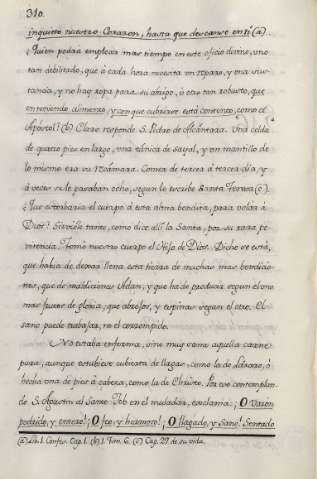 310.
inquieto nuestro Corazon, hasta que descanse en ti (a).
¿Quien podrá emplear mas tiempo en este oficio divino, uno
tan debilitado, que à cada hora necesita un reparo, y una sus-
tancia, y no hay ropa para su abrigo, ò otro tan robusto, que
en teniendo alimento, y con que cubrirse està contento, como el
Apóstol? (b) Claro responde S. Pedro de Alcántara. Una celda
de quatro pies en largo, una túnica de sayal, y un mantillo de
lo mismo era su recámara. Comer de tercer à tercer dia, y
à veces se le pasaban ocho, segun lo escribe Santa Teresa (c).
¿Que estorbaria el cuerpo à esta alma bendita, para volar à
Dios? tanto, como dice allí la Santa, por su rara pe-
nitencia. Tomó nuestro cuerpo el Hijo de Dios. Dicho se está,
que habia de dexar llena esta tierra de muchas mas bendicio-
nes, que de maldiciones Adan, y que ha de producir segun el uno
mas frutos de gloria, que abrojos, y espinas segun el otro. El
sano puede trabajar, no el corrompido.
No estaba enferma, sino muy sana aquella carne
pura, aunque estubiese cubierta de llagas, como la de Lázaro, ò
hecha una de pies à cabeza, como la de Christo. Por eso contemplan-
do S. Agustin al Santo Job en el muladar, exclama: ¡O Varon
podrido, y entero! ¡O feo, y hermoso! ¡O llagado, y sano! Sentado
(a) Lib. 1. Confes. Cap. 1. (b) 1. Tim. 6. (c) Cap. 27 de su vida.